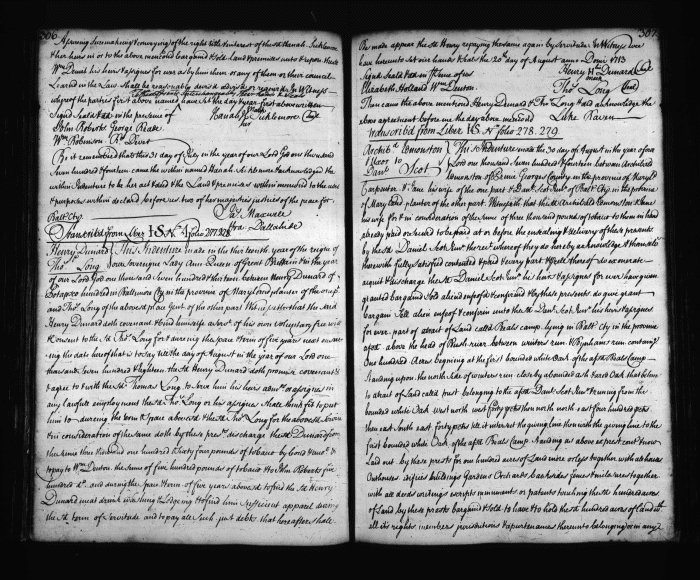 306
Assuring suremaking & conveying of the right title & interest of the sd Hanah Picklemore
& her heirs in or to the above menconed bargained & sold Land & premises unto & upon the sd
Wm Demit his heirs & assigns for ever as by him them or any of them or their councel
Learned in the Law Shall be reasonably devised advised or required In Witness
whereof the parties first above named have set the day & year first above written
Signed Seald & dd in the presence of
John Roberts George Reade
Hanah Picklemore Seal
her
Wm Robinson Rd Demit
Be it remembred that this 31 day of July in the year of our Lord God one thousand
seven hundred & fourteen came the within named Hanah Picklemore & acknowledged the
within Indenture to be her act & deed & the Land & premises within menconed to the uses
& purposes within declared before us two of her majesties justices of the peace for
Balt. Cty
Ja: Maxwell
Fra: Dallahide
Transcribd from Liber IS No folio 277.278
Henry Dunard This Indenture made in this the tenth year of the reign of
Thos Long our Sovereigne Lady Ann Queen of Great Brittain & in the year
of our Lord God one thousand seven hundred & thirteen between Henry Dunard of
Potapsco hundred in Baltimore Cty in the province of Maryland planter of the one pt
and Thos Long of the abovesd place Gent of the other part Witnesseth that the said
Henry Dunard doth covenant & bind himselfe as an act of his own voluntary free will
& consent to the sd Thos Long for & during the space & term of five years next ensu-
ing the date hereof that is to say till the day of August in the year of our Lord one
thousand seven hundred & eighteen the sd Henry Dunard doth promise covenant &
agree to & with the sd Thomas Long to serve him his heirs admrs or assigns in
any lawfull employment the sd Thos Long or his assignes shall think fit to put
him to dureing the term & space abovesd & the sd Thos Long for the abovesd service
& in consideration of the same doth by these prests discharge the sd Dunard from
the same three thousand one hundred & thirty four pounds of tobacco by bond &
to pay to Wm Denton the sume of five hundred pounds of tobacco & to John Roberts five
hundred & and dureing the space & term of five years abovesd to find the sd Henry
Dunard meat drink washing & Lodging & to find him sufficient apparel dureing
the sd term of Servitude and to pay all such just debts that hereafter shall
307
Be made appear the sd Henry repaying the same again by Servitude In Witness we
have hereunto set our hands & seals the 20th day of August anno Domi 1713
Signd Seald & dd in presence of us
Henry H Dunard Seal
mark
Elizabeth Holland Wm Denton
Tho: Long Seal
Then came the above mentiond Henry Dunard & Tho Long & did acknowledge the
above agreement before me the day above menconed Luke Raven
transcribd from Liber IS No folio 278. 279.
Archibd Edmonston This Indenture made the 30 day of August in the year of our
Deed to Lord one thousand seven hundred & fourteen between Archibald
Danl Scot Edmonston of Prince Georges County in the province of Maryld
Carpenter & Jane his wife of the one part & Danl Scot Junr of Balt. Cty in the province of
Maryland planter of the other part Witnesseth that the sd Archibald Edmonston & Jane
his wife for & in consideration of the sume of three thousand pounds of tobacco to them in hand
already paid or secured to be paid at or before the ensealing & delivery of these presents
by the sd Daniel Scot Junr the rect whereof they do hereby acknowledge & themselves
therewith fully satisfied contented & paid & every part & parcell thereof do exonerate
acquit & discharge the sd Daniel Scot Junr his heirs & assigns for ever have given
granted bargained Sold aliened enfeofed & confirmed & by these presents do give grant
bargain Sell alien enfeof & confirm unto the sd Danl Scot Junr his heirs & assignes
for ever part of a tract of Land called Beals camp lying in Balt. Cty in the province
afsd above the head of Bush river between winters run & Bynhams run containg
One hundred acres beginning at the first bounded white Oak of the afsd Beals Camp
standing upon the north side of winters run close by a bounded ash & a red Oak that belong
to a tract of land called pat belonging to the afsd Danl Scot Junr & runing from the
bounded white Oak west north west forty perches then north north east four hundred perches
then east South east forty perches till it intersect the given line then with the given line to the
first bounded white Oak of the afsd Beals camp Standing as above exprest cont & now
laid out by these prests for one hundred acres of Land more or less together with all houses
Outhouses edifices buildings Gardens Orchards backsides fences & inclosures together
with all deeds writings scripts minuments or patents touching the sd hundred acres
of Land by these prests bargained & sold to have & to hold the sd hundred acres of Land with
all its rights members jurisdictions & apurtenances thereunto belonging or in any